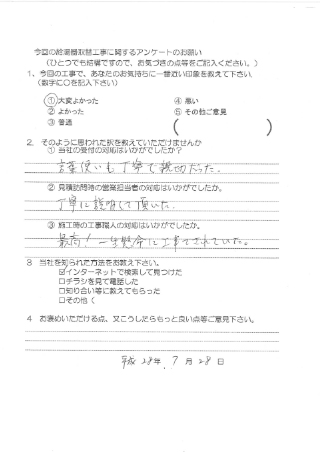 今回の給湯器取替工事に関するアンケートのお願い
（ひとつでも結構ですので、お気づきの点等をご記入ください。）
1、今回の工事で、あなたのお気持ちに一番近い印象を教えて下さい。
（数字に○を記入下さい）
①大変よかった ④ 悪い
② よかった ⑤ その他ご意見
③ 普通 （ ）
2、そのように思われた訳を教えていただけませんか
① 当社の受付の対応はいかがでしたか？
言葉使いも丁寧で親切だった。
② 見積訪問時の営業担当者の対応はいかがでしたか。
丁寧に説明して頂いた。
③ 施工時の工事職人の対応はいかがでしたか。
最高！一生懸命に工事をされていた。
3 当社を知られた方法をお教え下さい。
☑インターネットで検索して見つけた
□チラシを見て電話した
□知り合い等に教えてもらった
□その他（
4 お褒めいただける点、又こうしたらもっと良い点等ご意見下さい。
平成 28年 7月 28日